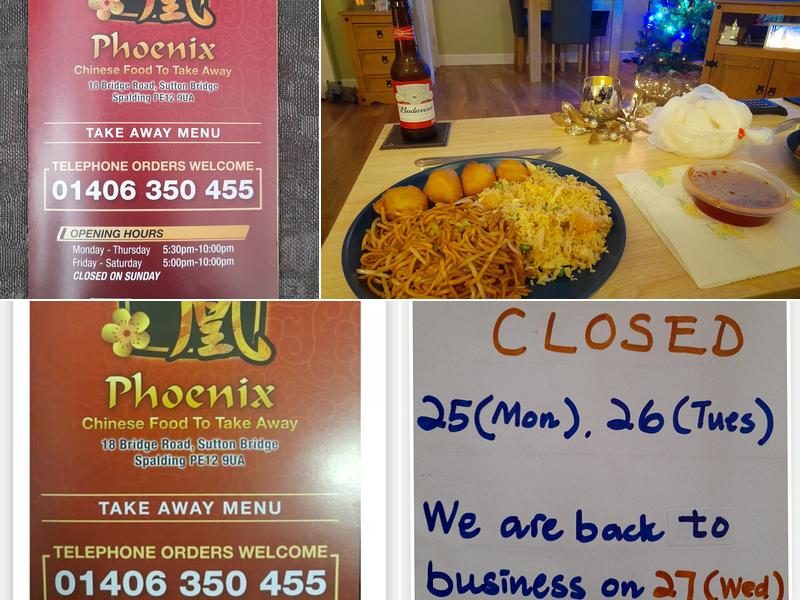 凰
Phoenix
Chinese Food To Take Away
18 Bridge Road, Sutton Bridge
Spalding PE12 9UA
TAKE AWAY MENU
TELEPHONE ORDERS WELCOME
01406 350 455
OPENING HOURS
Monday - Thursday 5:30pm-10:00pm
Friday - Saturday 5:00pm-10:00pm
CLOSED ON SUNDAY
Budweiser
凰
Phoenix
Chinese Food To Take Away
18 Bridge Road, Sutton Bridge
Spalding PE12 9UA
TAKE AWAY MENU
TELEPHONE ORDERS WELCOME
01406 350 455
CLOSED
25(Mon), 26(Tues)
We are back to
business on 27(Wed)